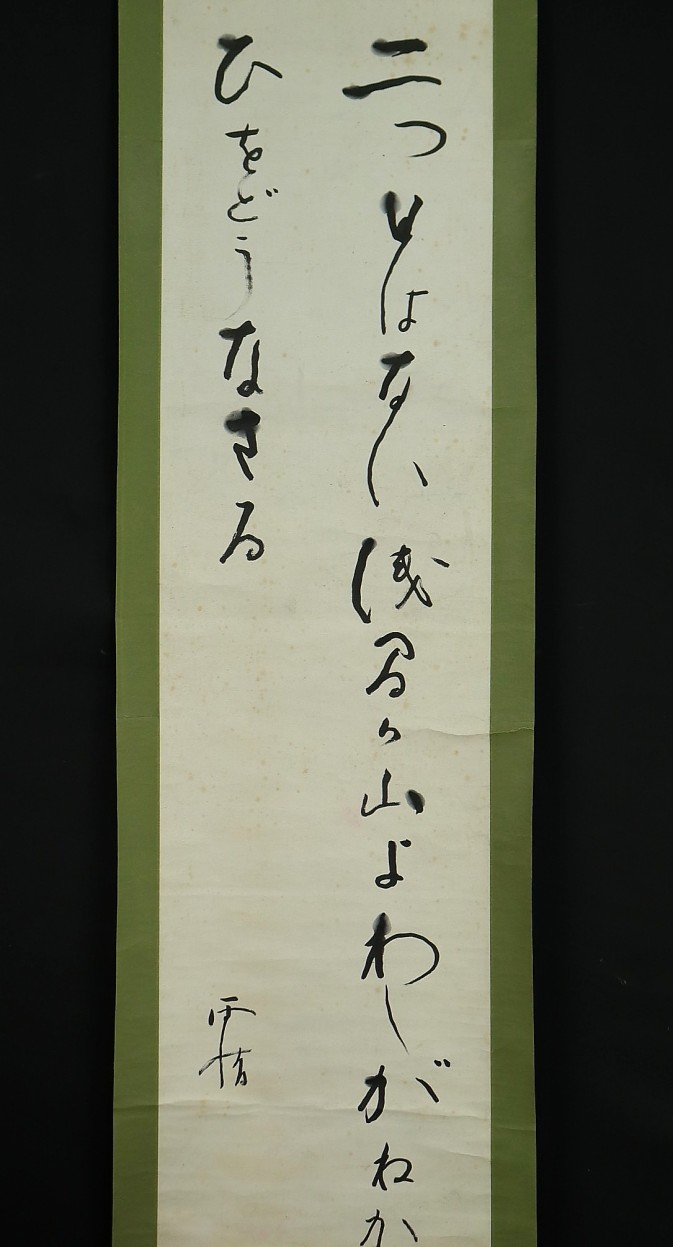 二つとはない浅間ヶ山よわしがねか
ひをどうなさる
雨情